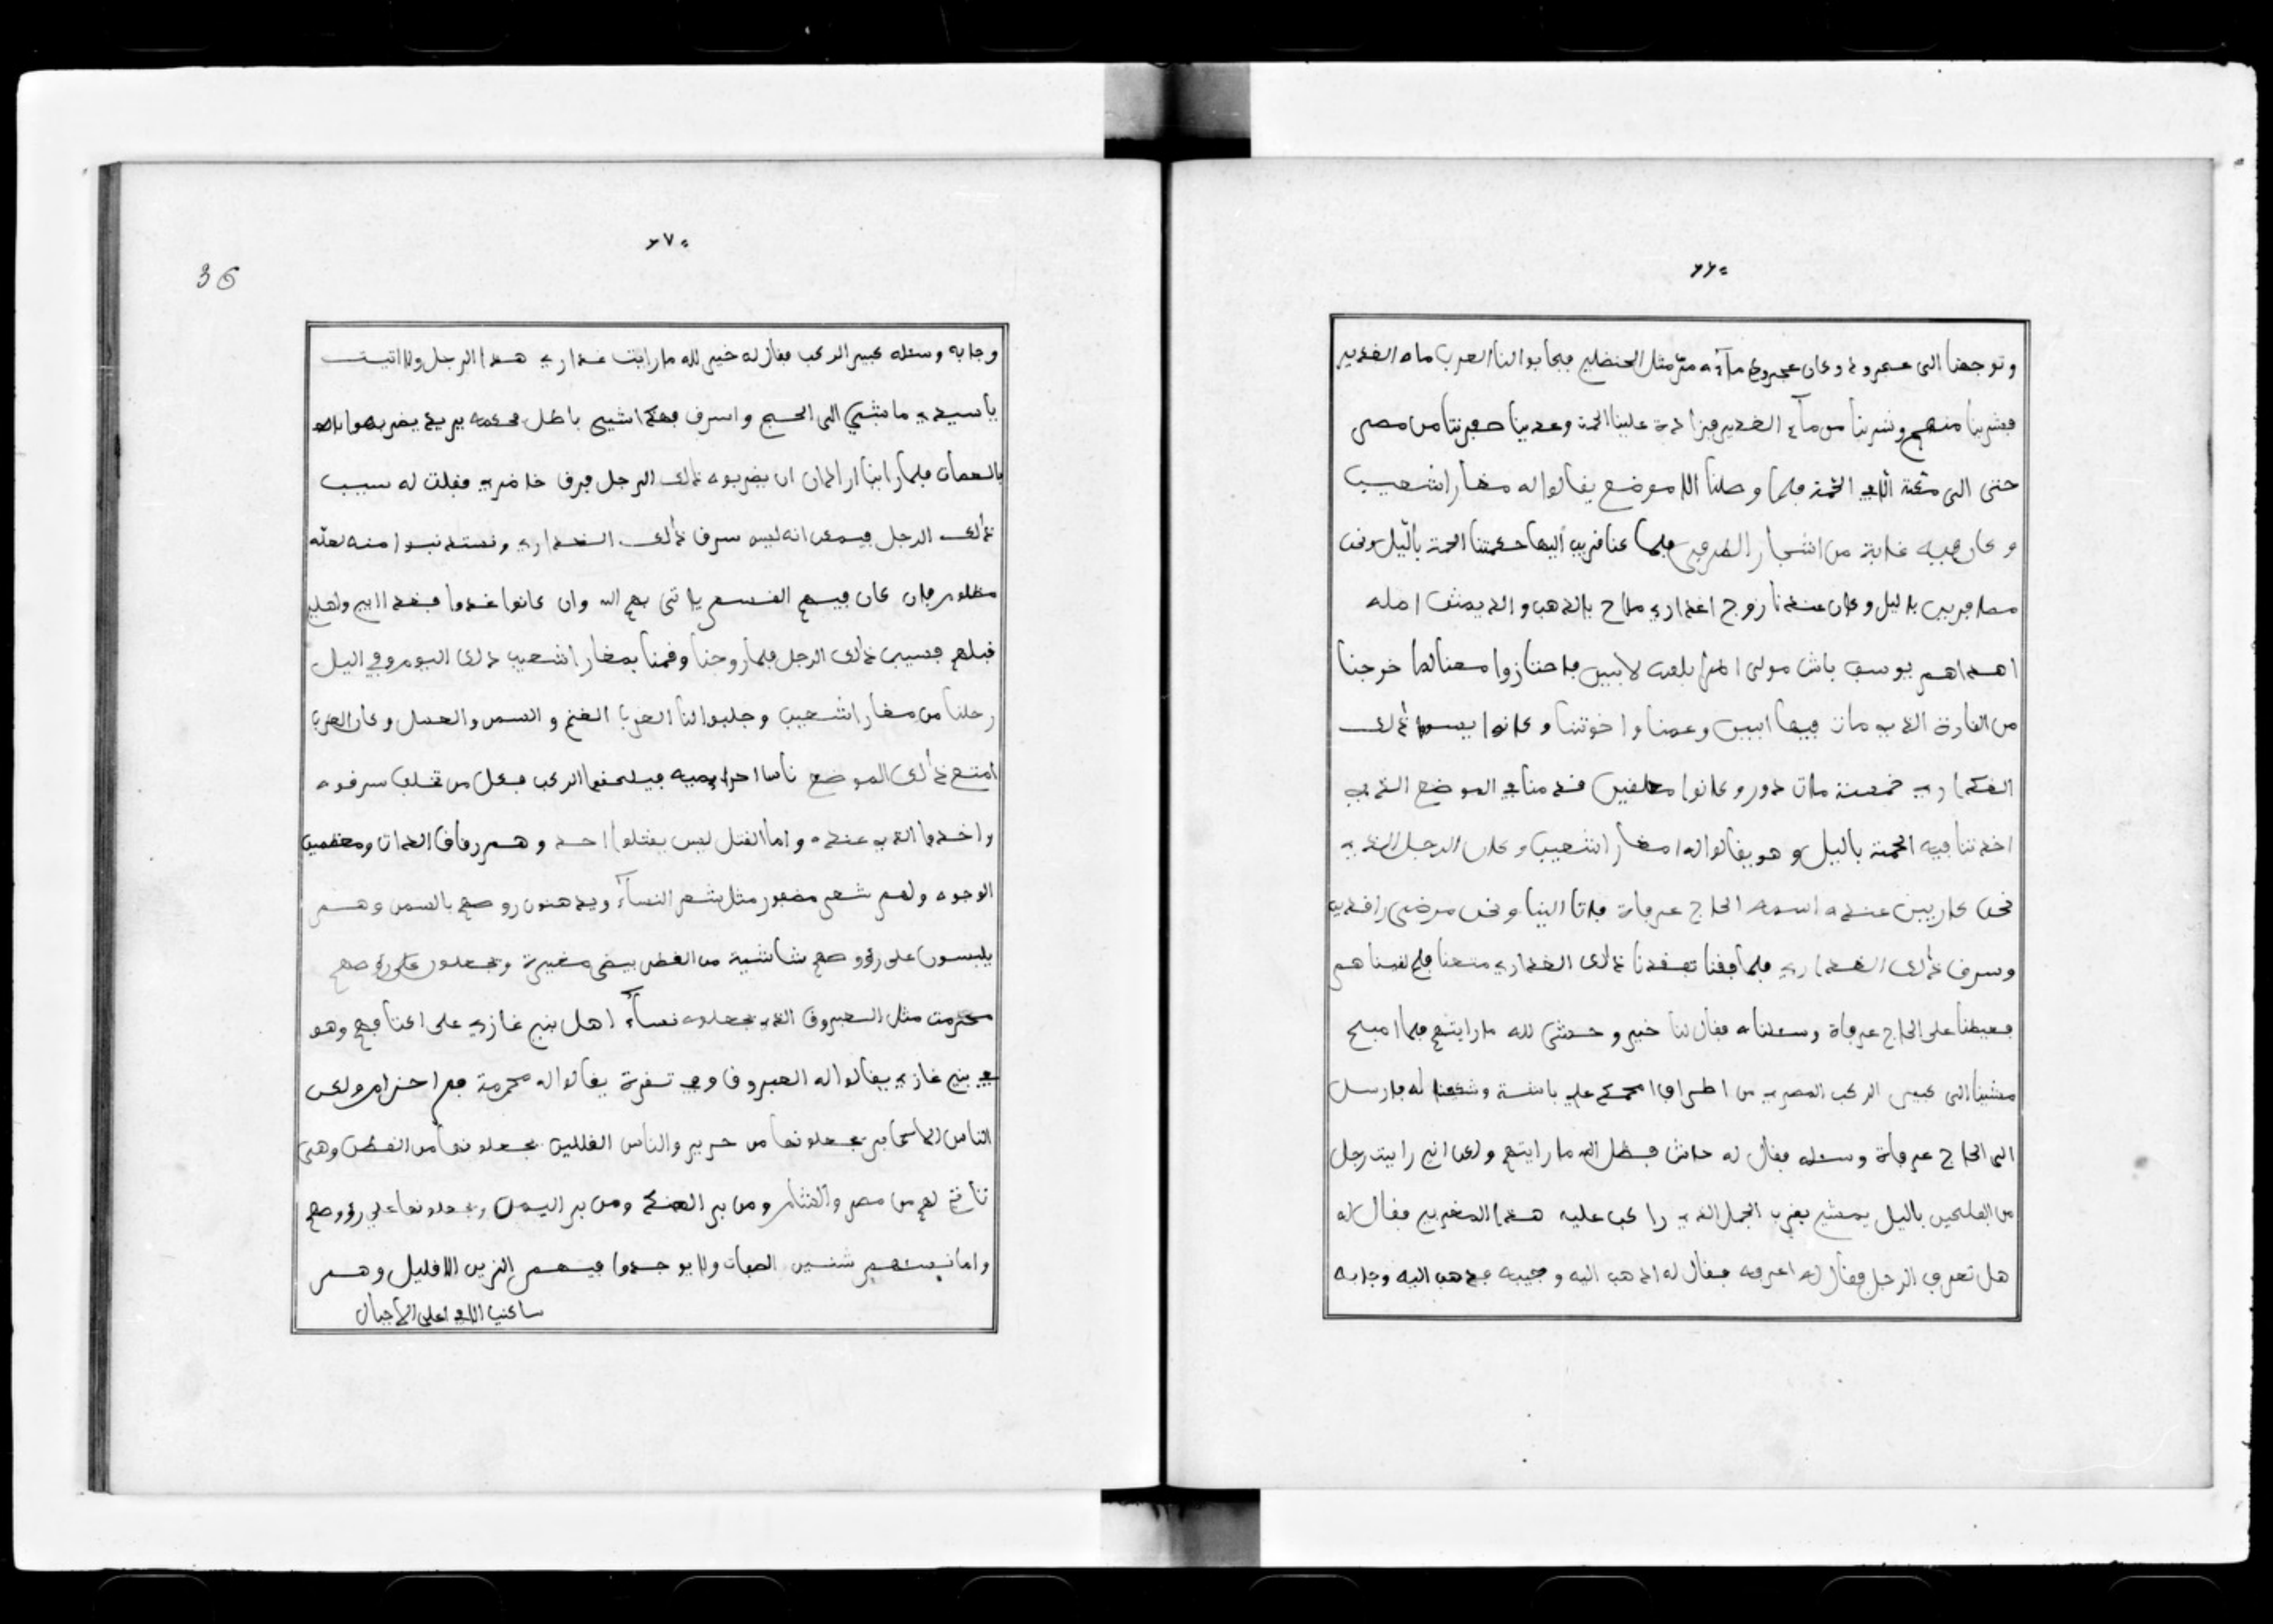 ٦٦
وتوجهنا الى عجرود وكان عجرود ماءه مر مثل الحنضل فجابوا لنا العرب ماء الغدير
فشربنا منهم وشربنا من ماء الغدير فزادة علينا الحمة وعدينا صفرتنا من مصر
حتى الى الحمة فلما وصلنا الا موضع يقالوا له مغار اشعيب
وكان فيه غابة من اشجار الطرفى فلما كنا قريب اليها حكمتنا الحمة باليل ونحن
مسافرين باليل وكان عندنا زوج اغداري ملاح بالذهب والديمشق امله
اهداهم يوسف باش مولى لابيي فاحتازوا معنا لما خرجنا
من الغارة الذي مات فيها ابيي وعمنا واخوتنا وكانوا يسوا ذالك
الغداري خمسة مات دور وكانوا معلقين قدمنا في الموضع الذي
اخذتنا فيه الحمة باليل وهو يقالوا له مغار اشعيب وكان الرجل الذي
نحن كاريين عنده اسمه الحاج عرفة فاتا الينا ونحن مرضى راقدين
وسرق ذالك الغداري فلما فقنا تفقدنا ذالك الغداري متعنا فلم لقيناهم
فعيطنا على الحاج عرفة وسئلناه فقال لنا خير وحشى لله ما رايتهم فلما اصبح
مشينا الى كبير الركب المصري من اطراف وشكينا له فارسل
الى الحاج عرفة وسئله فقال له حاش فضل الله ما رايتهم ولكن اني رايت رجل
من الفلحين باليل يمشي بقرب الجمل الذي راكب عليه هذا المغربي فقال له
هل تعرف الرجل فقال له اعرفه فقال له اذهب اليه وجيبه فذهب اليه وجابه
٦٧
36
وجابه وسئله كبير الركب فقال له خير لله ما رايت غداري هذا الرجل ولا اتيت
يا سيدي ماشي الى الحج واسرق هكذا شيى باطل فحكمه يريد يضربه
بالعصات فلما راينا اراد ان يضربوه ذالك الرجل فرق خاطري فقلت له سيب
ذالك الرجل فيمكن انه ليس سرق ذالك الغداري ونستذنبوا منه لعله
مظلوم فان كان فيهم القسم ياتى بهم الله وان كانوا غدوا فقد ابي واهلي
قبلهم فسيب ذالك الرجل فلما روحنا وقمنا بمغار اشعيب ذالك اليوم وفي اليل
رحلنا من مغار اشعيب وجلبوا لنا العربا الغنم والسمن والعسل وكان العربا
امتع ذالك الموضع ناسا احراميه فيلحقوا الركب فكل من تخلف سرقوه
واخدوا الذي عنده واما القتل ليس يقتلوا احد وهم رقاق الذات ومعظمين
الوجوه ولهم شعر مضفور مثل شعر النساء ويدهنون روصهم بالسمن وهم
يلبسون على رووصهم شاشية من القطن بيضى صغيرة ويجعلون على روصهم
محرمت مثل العبروق الذي يجعلوه نساء اهل بني غازي على اكتافهم وهو
في بني غازي يقالوا له العبروق وفي تسفرة يقالوا له محرمة فم احزام ولكن
الناس الاكابر يجعلونها من حرير والناس القللين يجعلونها من القطن وهي
تاتي لهم من مصر والشام ومن بر الهند ومن بر اليمن ويجعلونها علي رووصهم
واما نسئهم شنيين الصفات ولا يوجدوا فيهم الزين الا قليل وهم
ساكنين الا في اعلى الاجبال